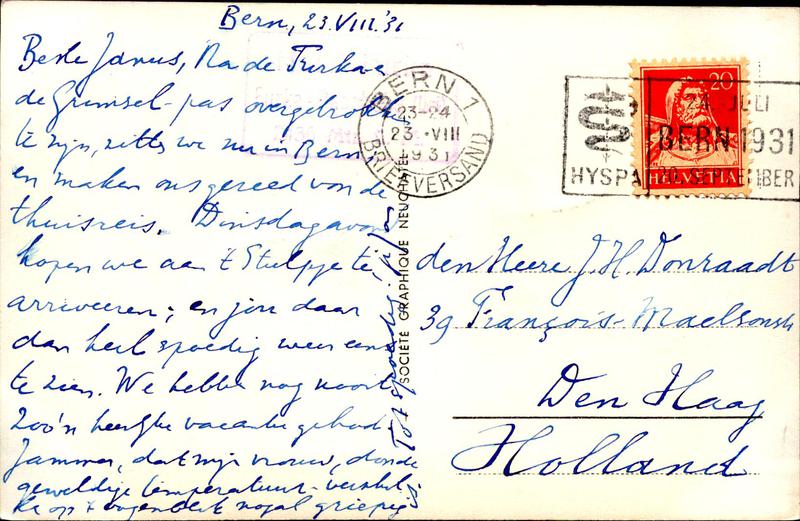 Bern, 23.VIII.'31
Beste Janus, Na de Furka en
de Grimsel-pas overgetrokken
te zijn, zitten we nu in Bern
en maken ons gereed voor de
thuisreis. Dinsdagavond
hopen we aan 't te
arriveeren; en jou daar
dan heel spoedig weer eens
te zien. We hebben nog nooit
zoo'n heerlijke vacantie gehad.
Jammer, dat mijn vrouw, door de
geweldige temperatuur-verschil
op 't oogenblik nogal grieperig
Tot spoedig.
SOCIÉTÉ GRAPHIQUE NEUCHATEL
BERN 1
23-24
23.VIII
1931
BRIEFVERSAND
20
HELVETIA
24. JULI
BERN 1931
HYSPA 20. SEPTEMBER
den Heere J. H. Donraadt
39 François-Maelsonstr
Den Haag
Holland